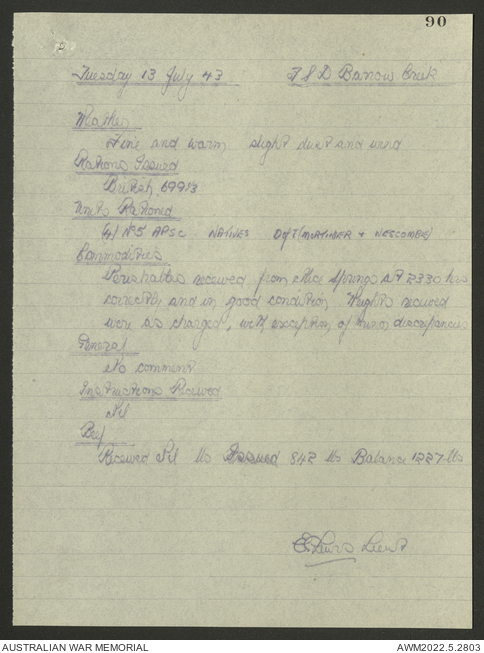 90
Tuesday 13 July 43 F S D Barrow Creek
Weather
Fine and warm slight dust and wind
Rations Issued
British 699⅓
Units Rationed
41 No5 APSC. NATIVES Det (MORTIMER + NESCOMBE)
Commodities
Perishables received from Alice Springs at 2330 hrs
correctly and in good condition Weights received
were as charged, with exception of minor discrepancies
General
No comment
Instructions Received
Nil
Beef
Received Nil lbs Issued 842 lbs Balance 1227 lbs
Lewis Lieut
AUSTRALIAN WAR MEMORIAL AWM2022.5.2803